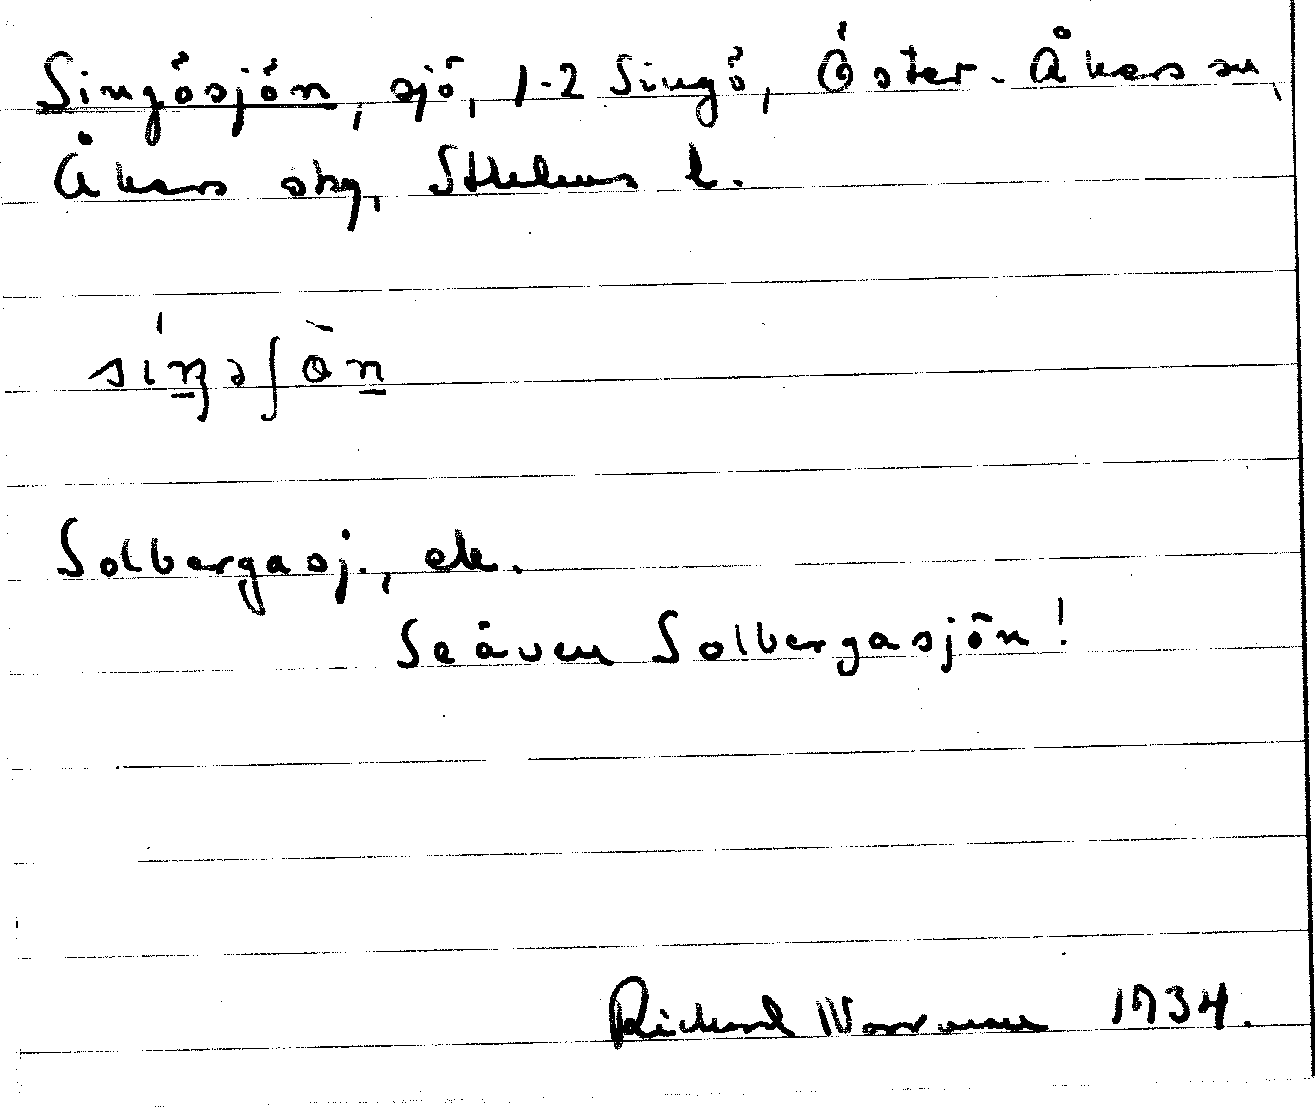 Singösjön, sjö, 1-2 Singö, Öster-Åkers sn,
Åkers skg, Sthlms l.
siŋəʃön
Solbergasj., ek.
Se även Solbergasjön!
Richard 1934.